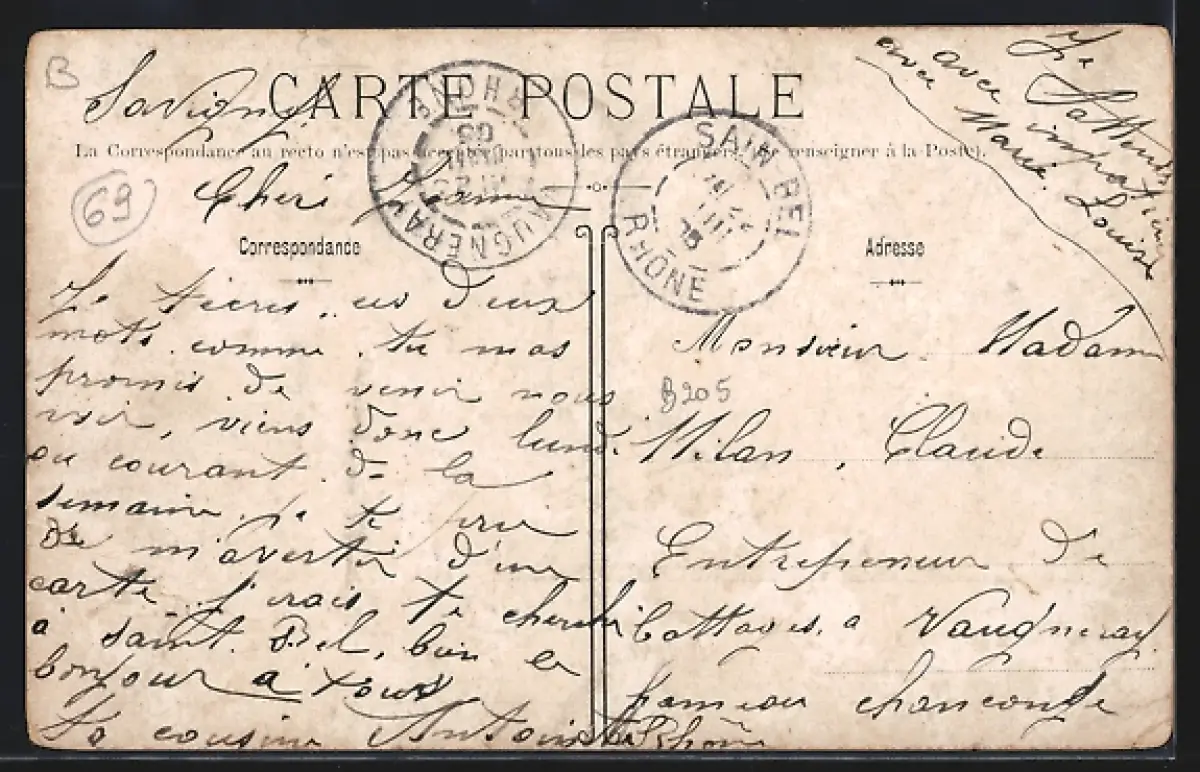 B
Savigny
CARTE POSTALE
La Correspondance au recto n'est pas acceptée par tous les pays étrangers (Se renseigner à la Poste).
69
Cheri
Correspondance
Je ticris ces deux
mots comme tu mas
promis de venir nous
voir, viens donc lundi
ou courant de la
semaine je te prie
de m'avertir d'une
carte j'irais te cherche
a saint Bel, bien le
bonjour a tous
ta cousine Antoinette
VAUGNERAY
RHONE
SAIN-BEL
RHONE
Je
t'attends
avec impatience
avec Marie Louise
Adresse
Monsieur Madame
B205
Milan, Claude
Entrepeneur de
Battages, a Vaugneray
hameau chanconde
Rhône